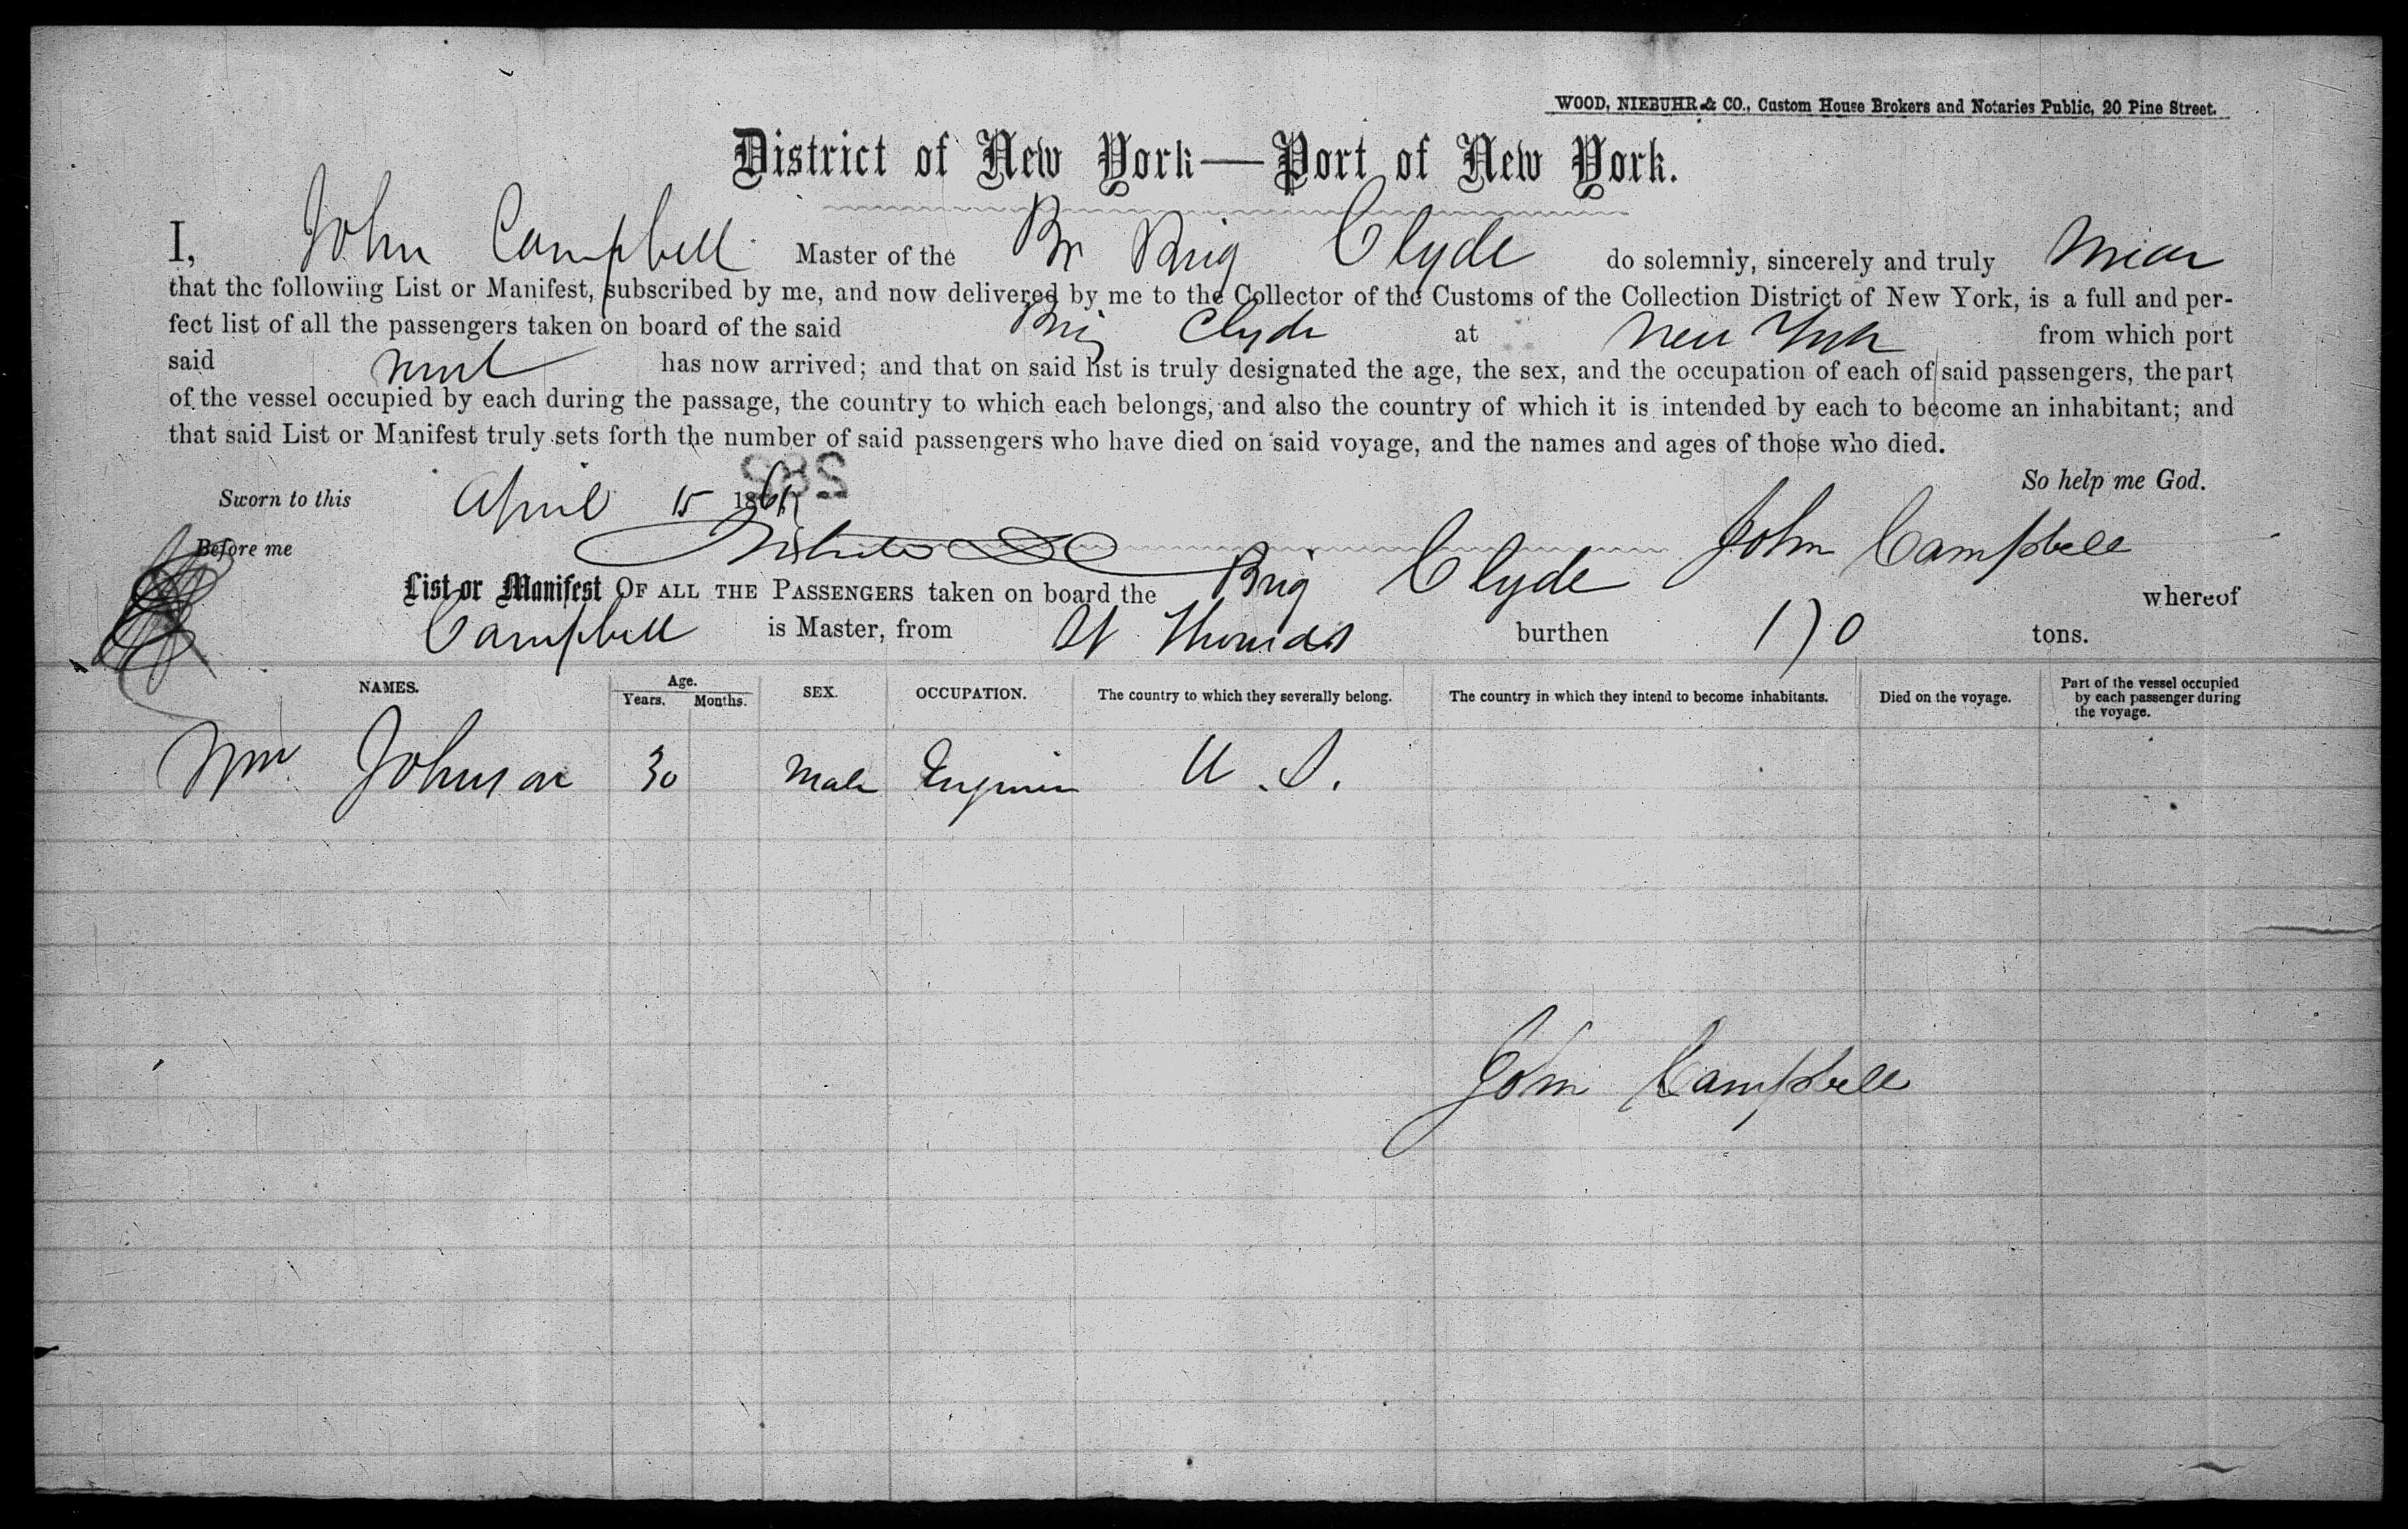 WOOD, NIEBUHR & CO., Custom House Brokers and Notaries Public, 20 Pine Street.
District of New York—Port of New York.
I, John Campbell Master of the Br Brig Clyde do solemnly, sincerely and truly swear
that the following List or Manifest, subscribed by me, and now delivered by me to the Collector of the Customs of the Collection District of New York, is a full and per-
fect list of all the passengers taken on board of the said Brig Clyde at New York from which port
said has now arrived; and that on said list is truly designated the age, the sex, and the occupation of each of said passengers, the part
of the vessel occupied by each during the passage, the country to which each belongs, and also the country of which it is intended by each to become an inhabitant; and
that said List or Manifest truly sets forth the number of said passengers who have died on said voyage, and the names and ages of those who died.
So help me God.
Sworn to this April 15 186
Before me John Campbell
List or Manifest OF ALL THE PASSENGERS taken on board the Brig Clyde whereof
Campbell is Master, from St Thomas burthen 170 tons.
NAMES. Age. Years. Months. SEX. OCCUPATION. The country to which they severally belong. The country in which they intend to become inhabitants. Died on the voyage. Part of the vessel occupied by each passenger during the voyage.
Wm Johnson 30 Male Engineer U.S.
John Campbell